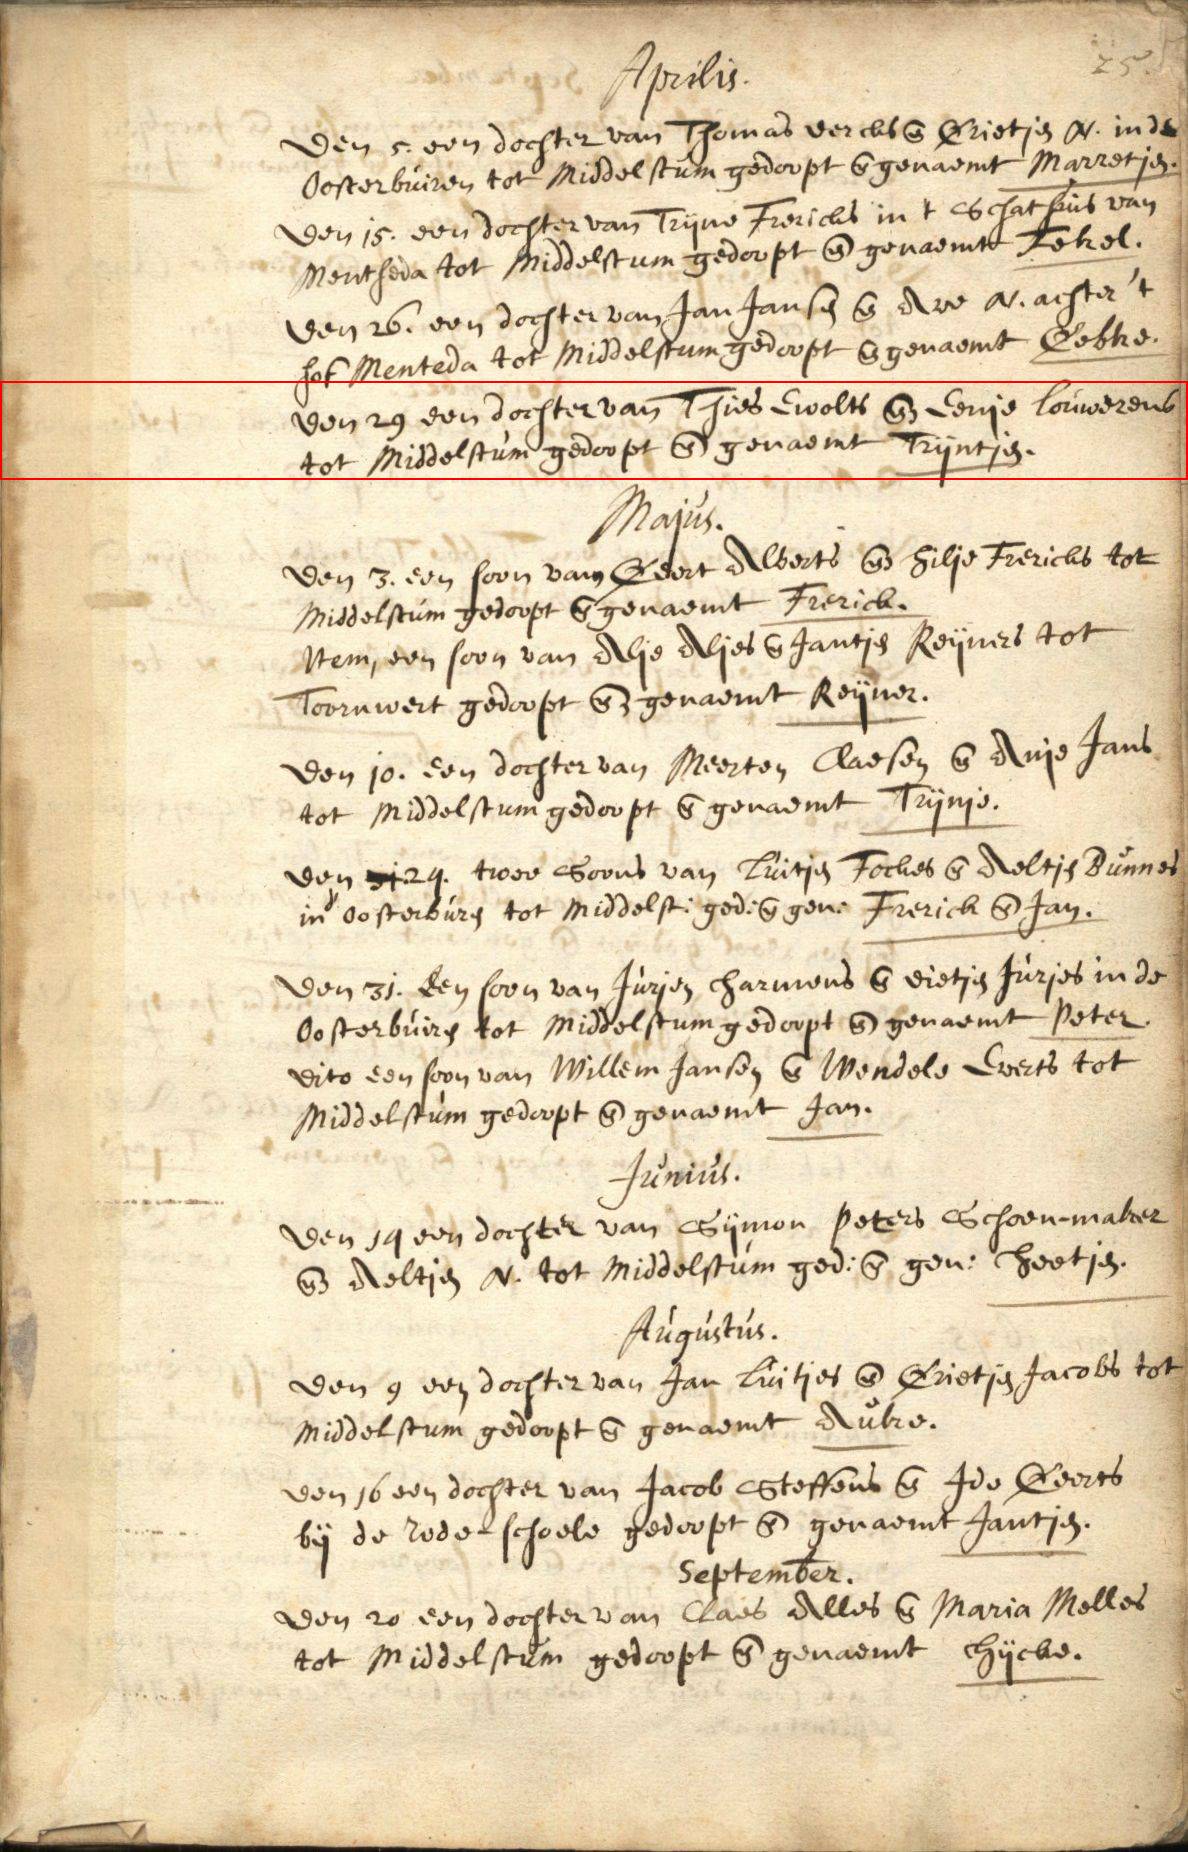 25.
Aprilis.
Den 5. een dochter van Thomas Dercks en Grietjen N. in de
Oosterbúiren tot Middelstúm gedoopt en genaemt Marretjen.
Den 15. een dochter van Trijne Frericks in 't Schathúis van
Mentheda tot Middelstum gedoopt en genaemt Fekel.
Den 26. een dochter van Jan Jansen en Ave N. achter 't
hof Menteda tot Middelstum gedoopt en genaemt Gebke.
Den 29 een dochter van Thies Ewolts en Eenje Louwerens
tot Middelstúm gedoopt en genaemt Trijntjen.
Majús.
Den 3. een soon van Geert Alberts en Hilje Frericks tot
Middelstúm gedoopt en genaemt Frerick.
Item, een soon van Alje Aljes en Jantjen Reijners tot
Toornwert gedoopt en genaemt Reijner.
Den 10. een dochter van Meerten Claesen en Anje Jans
tot Middelstum gedoopt en genaemt Trijnje.
Den 24. twee Soons van Lúitjen Fockes en Aeltjen Búnnes
in Oosterbúren tot Middelst: ged: en gen: Frerick en Jan.
Den 31. Een soon van Júrjen Harmens en Dietjen Júrjes in de
Oosterbúiren tot Middelstum gedoopt en genaemt Peter.
Dito een soon van Willem Jansen en Wendele Everts tot
Middelstúm gedoopt en genaemt Jan.
Júniús.
Den 14 een dochter van Sijmon Peters Schoen-maker
en Aeltjen N. tot Middelstúm ged: en gen: Heetjen.
Aúgústús.
Den 9 een dochter van Jan Lúitjes en Grietjen Jacobs tot
Middelstum gedoopt en genaemt Aúke.
Den 16 een dochter van Jacob Steffens en Ide Geerts
bij de rode-schoele gedoopt en genaemt Jantjen.
September.
Den 20 een dochter van Claes Alles en Maria Melles
tot Middelstúm gedoopt en genaemt Hijcke.